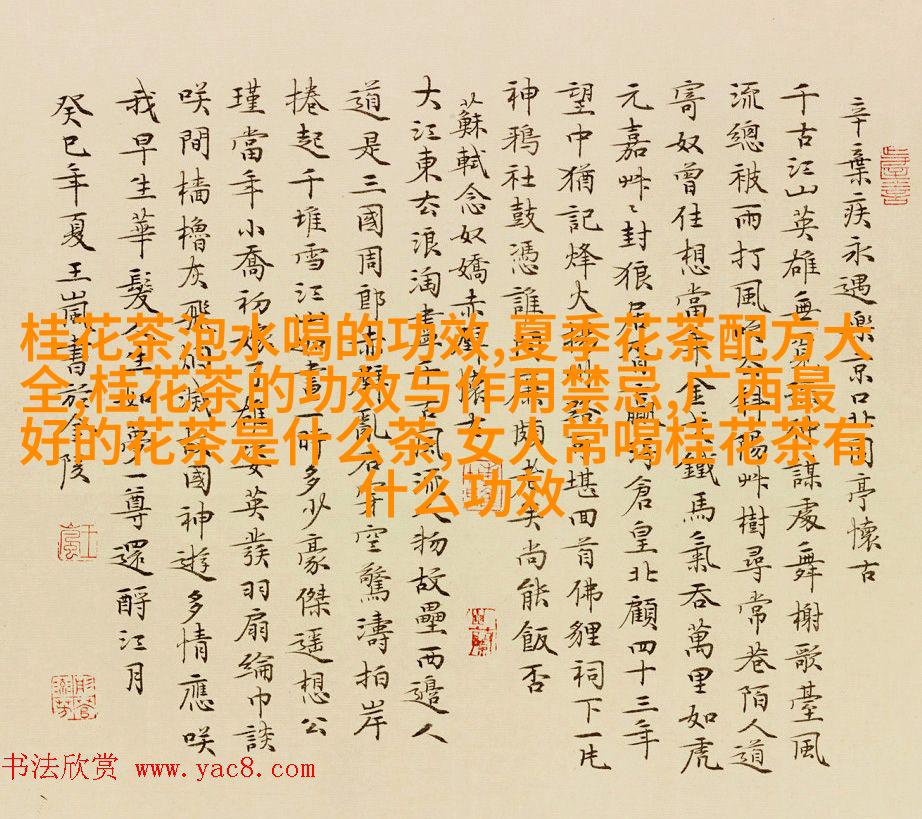 辛棄疾永遇樂京口北固亭懷古
千古江山英雄無覓孫仲謀處舞榭歌臺風
流總被雨打風吹去斜陽艸樹尋常巷陌人道
寄奴曾住想當年金戈鐵馬氣吞萬里如虎
元嘉艸〻封狼居胥贏得倉皇北顧四十三年
望中猶記烽火揚州路可堪回首佛貍祠下一片
神鴉社鼓憑誰問廉頗老矣尚能飯否
蘇軾念奴嬌赤壁懷古
大江東去浪淘盡千古風流人物故壘西邊人
道是三國周郎赤壁亂石穿空驚濤拍岸
捲起千堆雪江山如畫一時多少豪傑遥想公
瑾當年小喬初嫁了雄姿英發羽扇綸巾談
咲間檣櫓灰飛煙滅故國神遊多情應咲
我早生華髮人生如夢一尊還酹江月
癸巳年夏王嵐書於金陵
桂花茶泡水喝的功效,夏季花茶配方大
全,桂花茶的功效与作用禁忌,广西最
好的花茶是什么茶,女人常喝桂花茶有
什么功效
书法欣赏 www.yac8.com